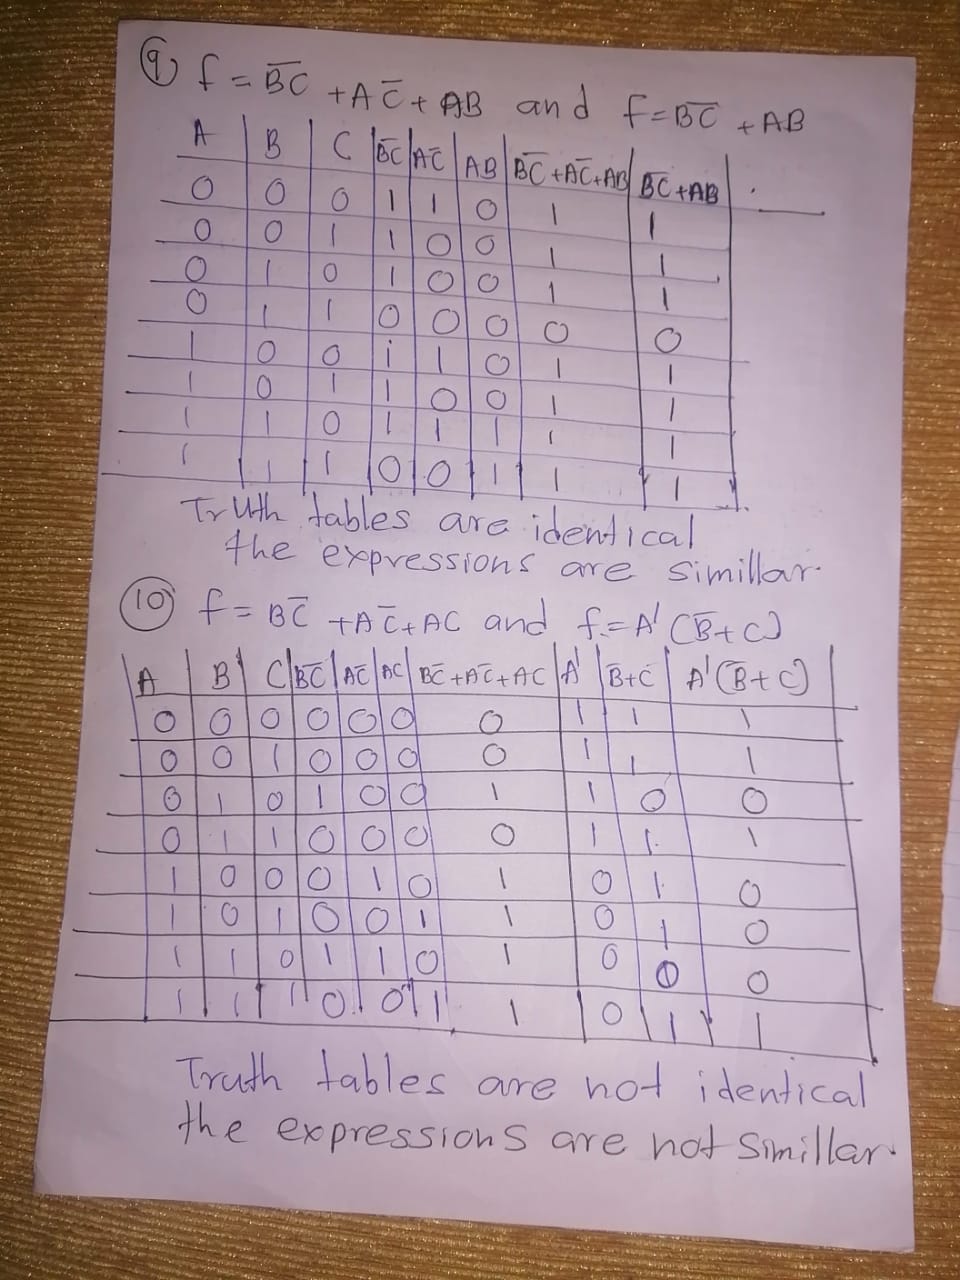 9) f = B̅C̅ + AC̅ + AB and f = B̅C̅ + AB
A B C B̅C̅ AC̅ AB B̅C̅+AC̅+AB B̅C̅+AB
0 0 0 1 1 0 1 1
0 0 1 1 0 0 1 1
0 1 0 1 0 0 1 1
0 1 1 0 0 0 0 0
1 0 0 1 1 0 1 1
1 0 1 1 0 0 1 1
1 1 0 1 1 1 1 1
1 1 1 0 0 1 1 1
Truth tables are identical
the expressions are simillar.
10) f = BC̅ + AC̅ + AC and f = A' (B̅+C)
A B C BC̅ AC̅ AC BC̅+AC̅+AC A' B̅+C A'(B̅+C)
0 0 0 0 0 0 0 1 1 1
0 0 1 0 0 0 0 1 1 1
0 1 0 1 0 0 1 1 0 0
0 1 1 0 0 0 0 1 1 1
1 0 0 0 1 0 1 0 1 0
1 0 1 0 0 1 1 0 1 0
1 1 0 1 1 0 1 0 0 0
1 1 1 0 0 1 1 0 1 1
Truth tables are not identical
the expressions are not simillar.